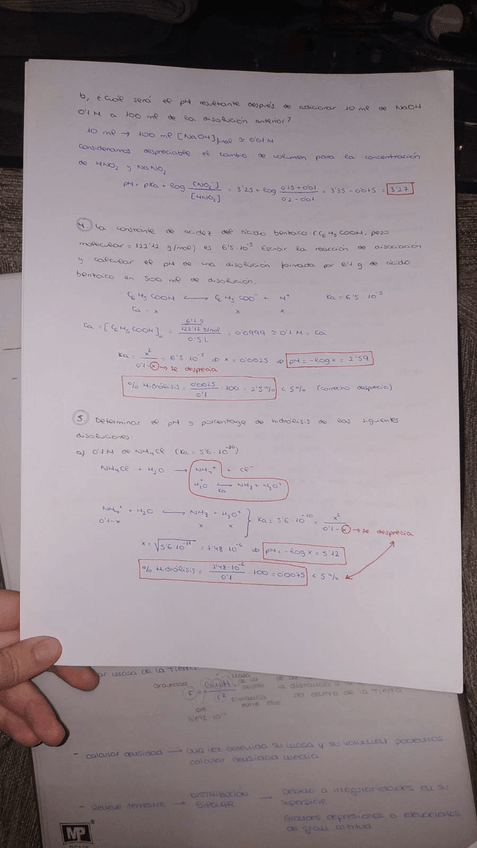 b, ¿Cuál será el pH resultante después de adicionar 10 ml de NaOH
0'1M a 100 ml de la disolución anterior?
10 ml → 100 ml [NaOH]final ≃ 0'01M
Consideramos despreciable el cambio de volumen para la concentración
de HNO2 y NaNO2
pH = pKa + log [NO2-]/[HNO2] = 3'25 + log (0'15+0'01)/(0'2-0'01) = 3'35 - 0'075 = 3'27
4, La constante de acidez del ácido benzoico (C6H5COOH, peso
molecular = 122'12 g/mol) es 6'5·10-5 Escribir la reacción de disociación
y calcular el pH de una disolución formada por 6'1 g de ácido
benzoico en 500 ml de disolución.
C6H5COOH ⟷ C6H5COO- + H+ Ka = 6'5·10-5
Ca - x x x
Ca = [C6H5COOH]0 = (6'1 g / 122'12 g/mol) / 0'5 L = 0'0999 ≃ 0'1 M = Ca
Ka = x2/(0'1-x) = 6'5·10-5 ⇒ x = 0'0025 ⇒ pH = -log x = 2'59
→ se desprecia
% Hidrólisis = 0'0025/0'1 · 100 = 2'5% < 5% (correcto desprecia)
5, Determinar el pH y porcentaje de hidrólisis de las siguientes
disoluciones
a) 0'1 M de NH4Cl (Ka = 5'6·10-10)
NH4Cl + H2O → NH4+ + Cl-
H2O ⟷ NH3 + H3O+
Ka
NH4+ + H2O ⟷ NH3 + H3O+ } Ka = 5'6·10-10 = x2/(0'1-x) → se desprecia
0'1-x x x
x = √5'6·10-11 = 7'48·10-6 ⇒ pH = -log x = 5'12
% Hidrólisis = 7'48·10-6/0'1 · 100 = 0'0075 < 5%
- Calcular densidad → una vez obtenida su masa y su volumen podemos
calcular densidad media
- Relieve terrestre → DISTRIBUCIÓN BIMODAL → Debido a irregularidades en su
superficie
Grandes depresiones o elevaciones
de gran altitud
MP